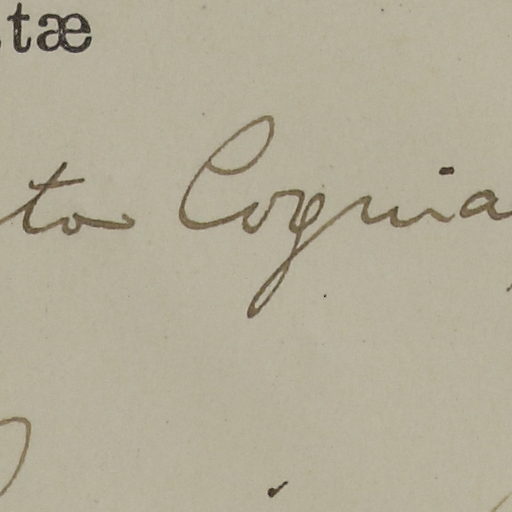 tæ
to Cognia